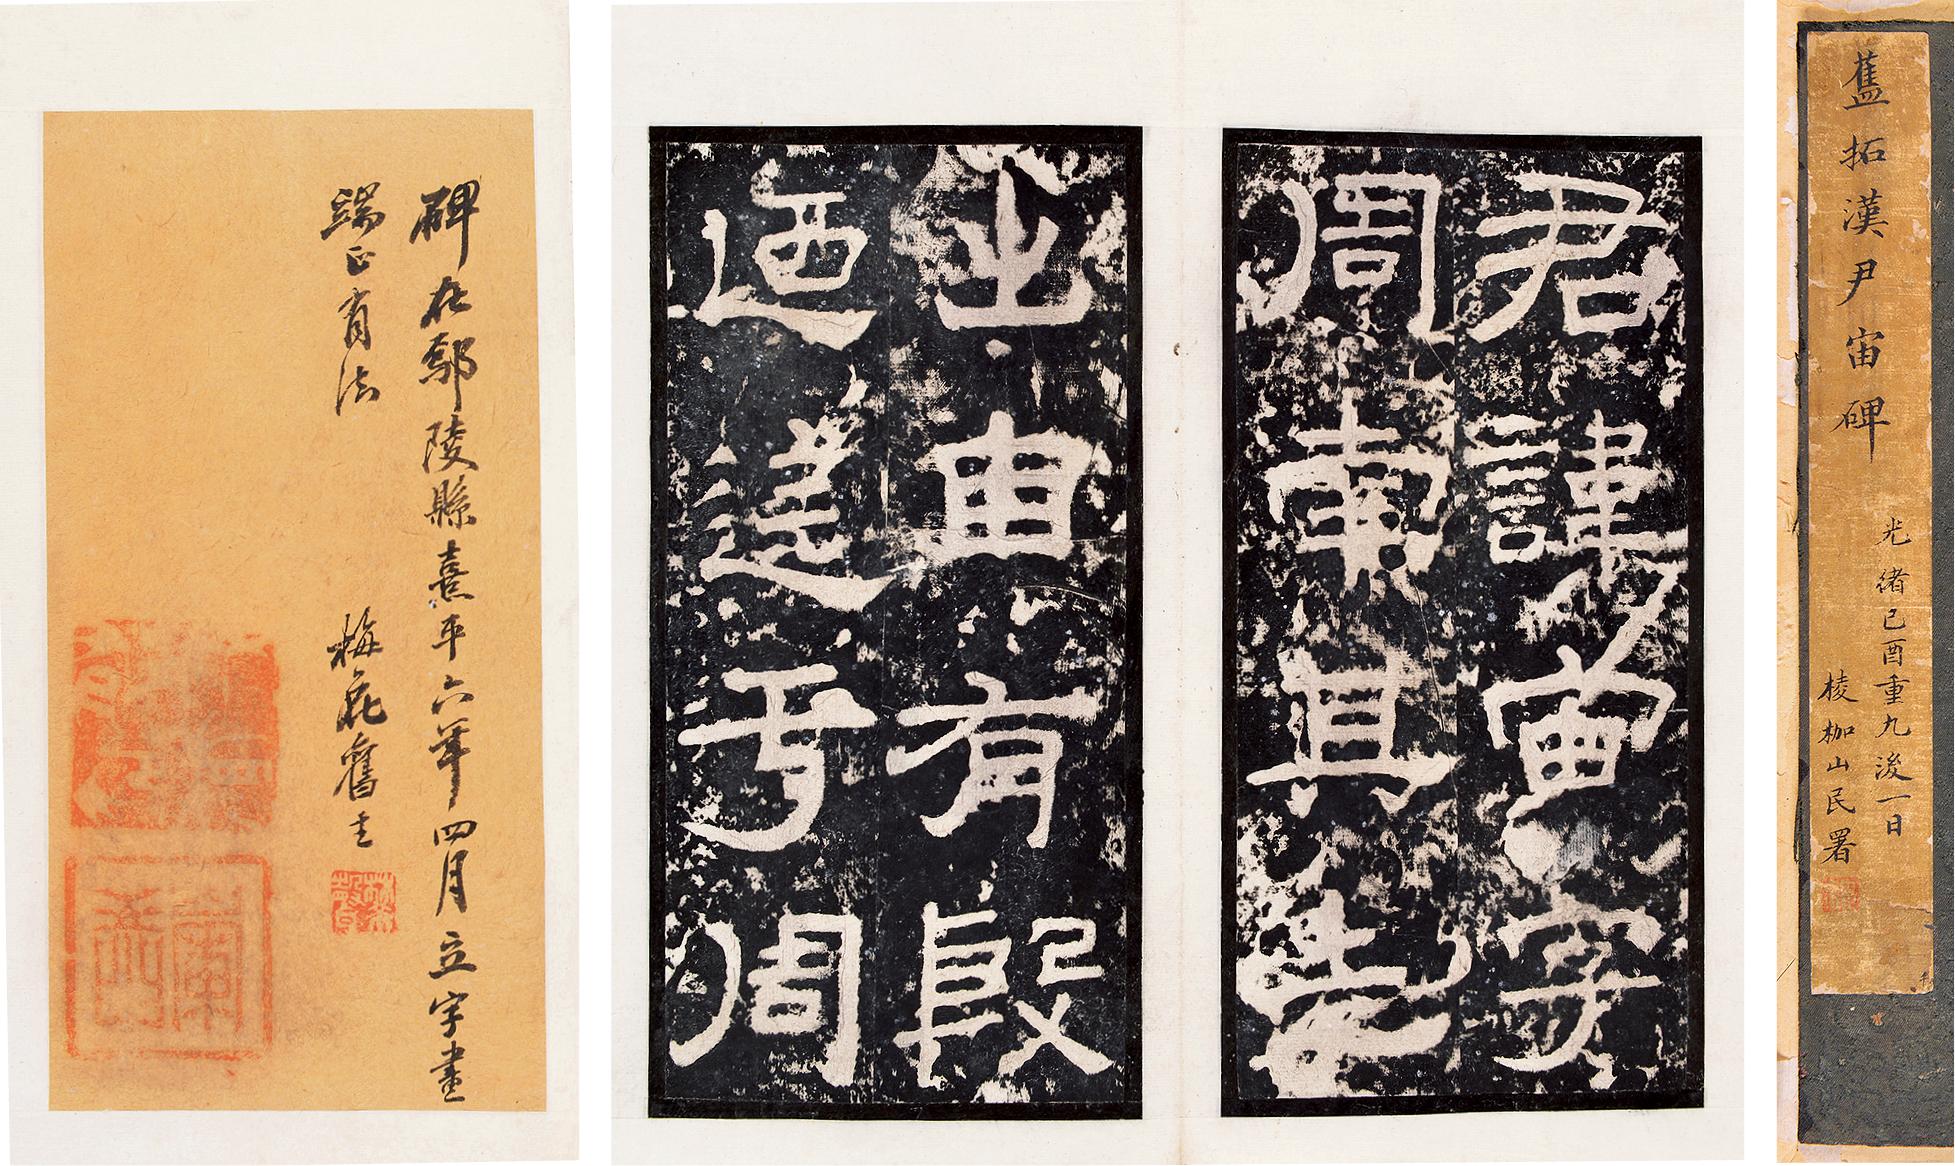 舊拓漢尹宙碑
光緒己酉重九後一日
棱枷山民署
君諱宙字
周南其先
出自有殷
迺遷于周
碑在鄢陵縣熹平六年四月立字畫
端正有法
梅花舊主